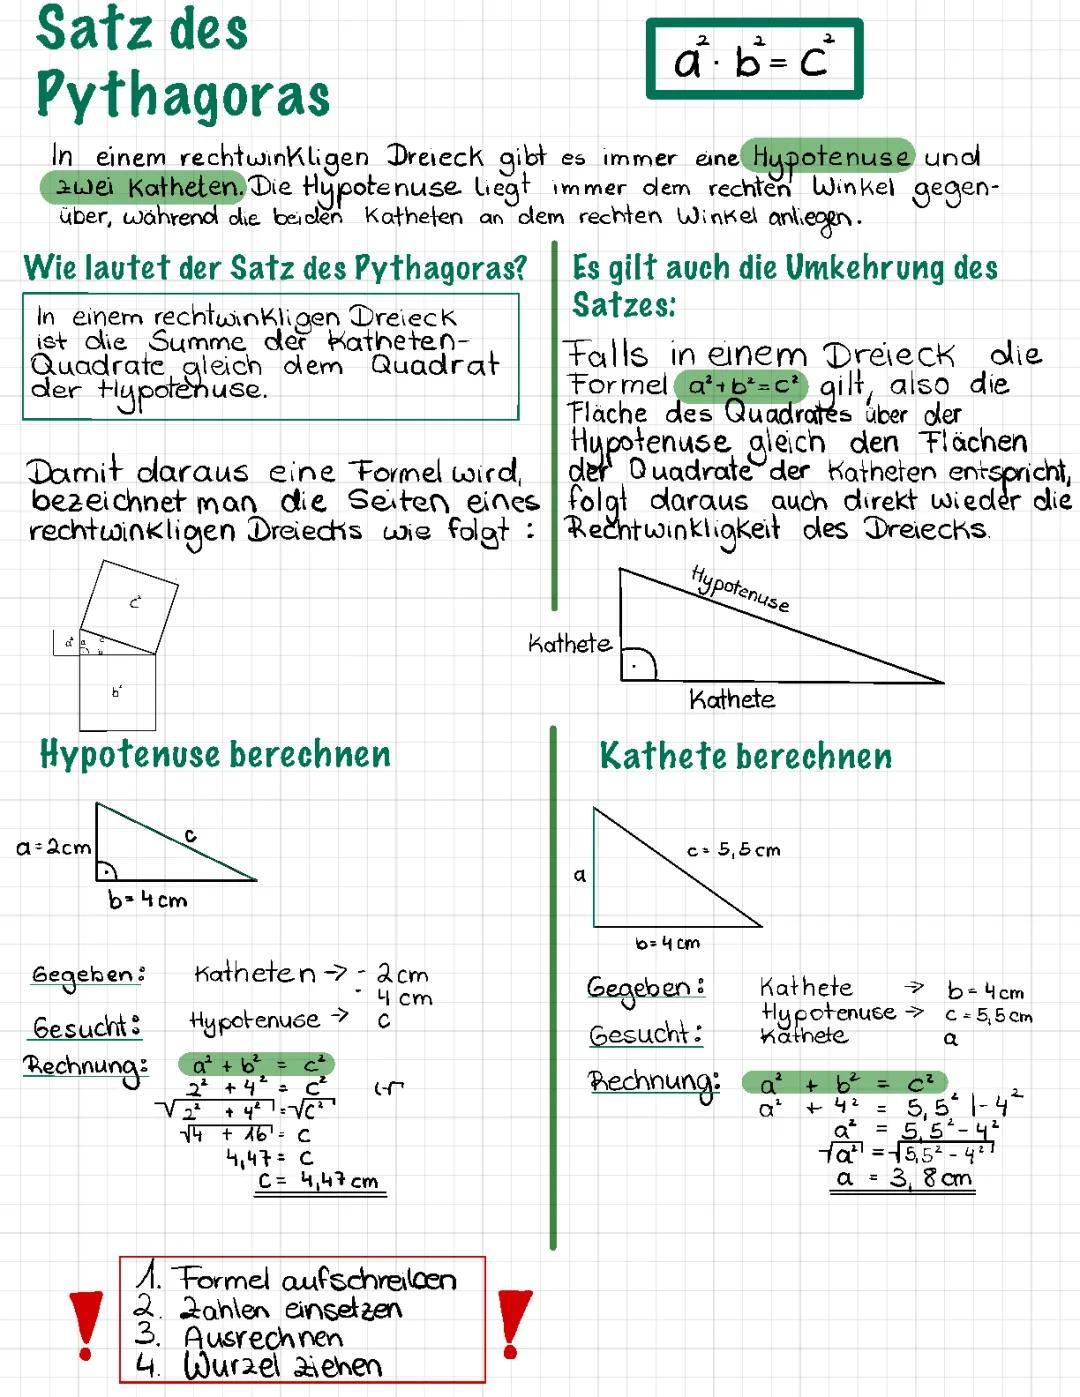 Satz des
Pythagoras
a² · b² = c²
In einem rechtwinkligen Dreieck gibt es immer eine Hypotenuse und
zwei Katheten. Die Hypotenuse liegt immer dem rechten Winkel gegen-
über, während die beiden Katheten an dem rechten Winkel anliegen.
Wie lautet der Satz des Pythagoras?
In einem rechtwinkligen Dreieck
ist die Summe der Katheten-
Quadrate gleich dem Quadrat
der Hypotenuse.
Damit daraus eine Formel wird,
bezeichnet man die Seiten eines
rechtwinkligen Dreiecks wie folgt :
c²
a² a c
b
b²
Es gilt auch die Umkehrung des
Satzes:
Falls in einem Dreieck die
Formel a² + b² = c² gilt, also die
Fläche des Quadrates über der
Hypotenuse gleich den Flächen
der Quadrate der Katheten entspricht,
folgt daraus auch direkt wieder die
Rechtwinkligkeit des Dreiecks.
Hypotenuse
Kathete
Kathete
Hypotenuse berechnen
a = 2cm
c
b = 4 cm
Gegeben: Katheten → - 2 cm
- 4 cm
Gesucht: Hypotenuse → c
Rechnung: a² + b² = c²
2² + 4² = c² |√
√2² + 4² = √c²
√4 + 16 = c
4,47 = c
c = 4,47 cm
Kathete berechnen
c = 5,5 cm
a
b = 4 cm
Gegeben: Kathete → b = 4 cm
Hypotenuse → c = 5,5 cm
Gesucht: Kathete a
Rechnung: a² + b² = c²
a² + 4² = 5,5² |- 4²
a² = 5,5² - 4²
√a² = √5,5² - 4²
a = 3,8 cm
! 1. Formel aufschreiben !
2. Zahlen einsetzen
3. Ausrechnen
4. Wurzel ziehen